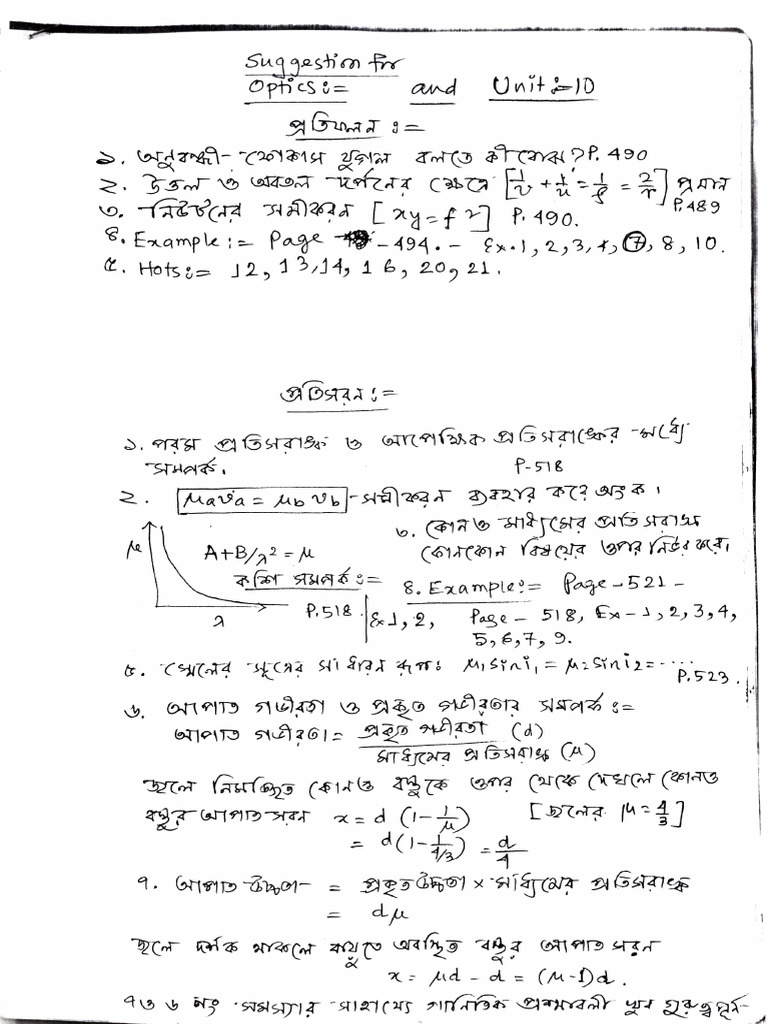 Suggestion for
Optics:= and Unit:=10
প্রতিফলন :=
১. অনুবন্ধী ফোকাস যুগল বলতে কী বোঝ? P. 490
২. উত্তল ও অবতল দর্পনের ক্ষেত্রে [1/v + 1/u = 1/f = 2/r] প্রমান P.489
৩. নিউটনের সমীকরন [xy = f²] P. 490.
৪. Example := Page - 494. - Ex. 1, 2, 3, 4, 7, 8, 10.
৫. Hots:= 12, 13, 14, 16, 20, 21.
প্রতিসরন :=
১. পরম প্রতিসরাঙ্ক ও আপেক্ষিক প্রতিসরাঙ্কের মধ্যে
সম্পর্ক. P-518
২. μava = μbvb - সমীকরন ব্যবহার করে অংক।
৩. কোনও মাধ্যমের প্রতিসরাঙ্ক
কোনকোন বিষয়ের ওপর নির্ভর করে।
μ A+B/λ² = μ
কশি সম্পর্ক:=
λ P.518
৪. Example:= Page-521 -
Ex 1, 2, Page - 518, Ex-1, 2, 3, 4,
5, 6, 7, 9.
৫. স্নেলের সূত্রের সাধারন রূপঃ μ1sini1 = μ2sini2 = ..... P.523.
৬. আপাত গভীরতা ও প্রকৃত গভীরতার সম্পর্ক :=
আপাত গভীরতা = প্রকৃত গভীরতা (d) / মাধ্যমের প্রতিসরাঙ্ক (μ)
জলে নিমজ্জিত কোনও বস্তুকে ওপর থেকে দেখলে কোনও
বস্তুর আপাত সরন x = d (1 - 1/μ) [জলের μ = 4/3]
= d(1 - 1/4/3) = d/4
৭. আপাত উচ্চতা = প্রকৃত উচ্চতা × মাধ্যমের প্রতিসরাঙ্ক
= dμ
জলে দর্শক থাকলে বায়ুতে অবস্থিত বস্তুর আপাত সরন
x = μd - d = (μ-1)d.
৭ ও ৬ নং সমস্যার সাহায্যে গানিতিক প্রশ্নাবলী খুব গুরুত্বপূর্ন-